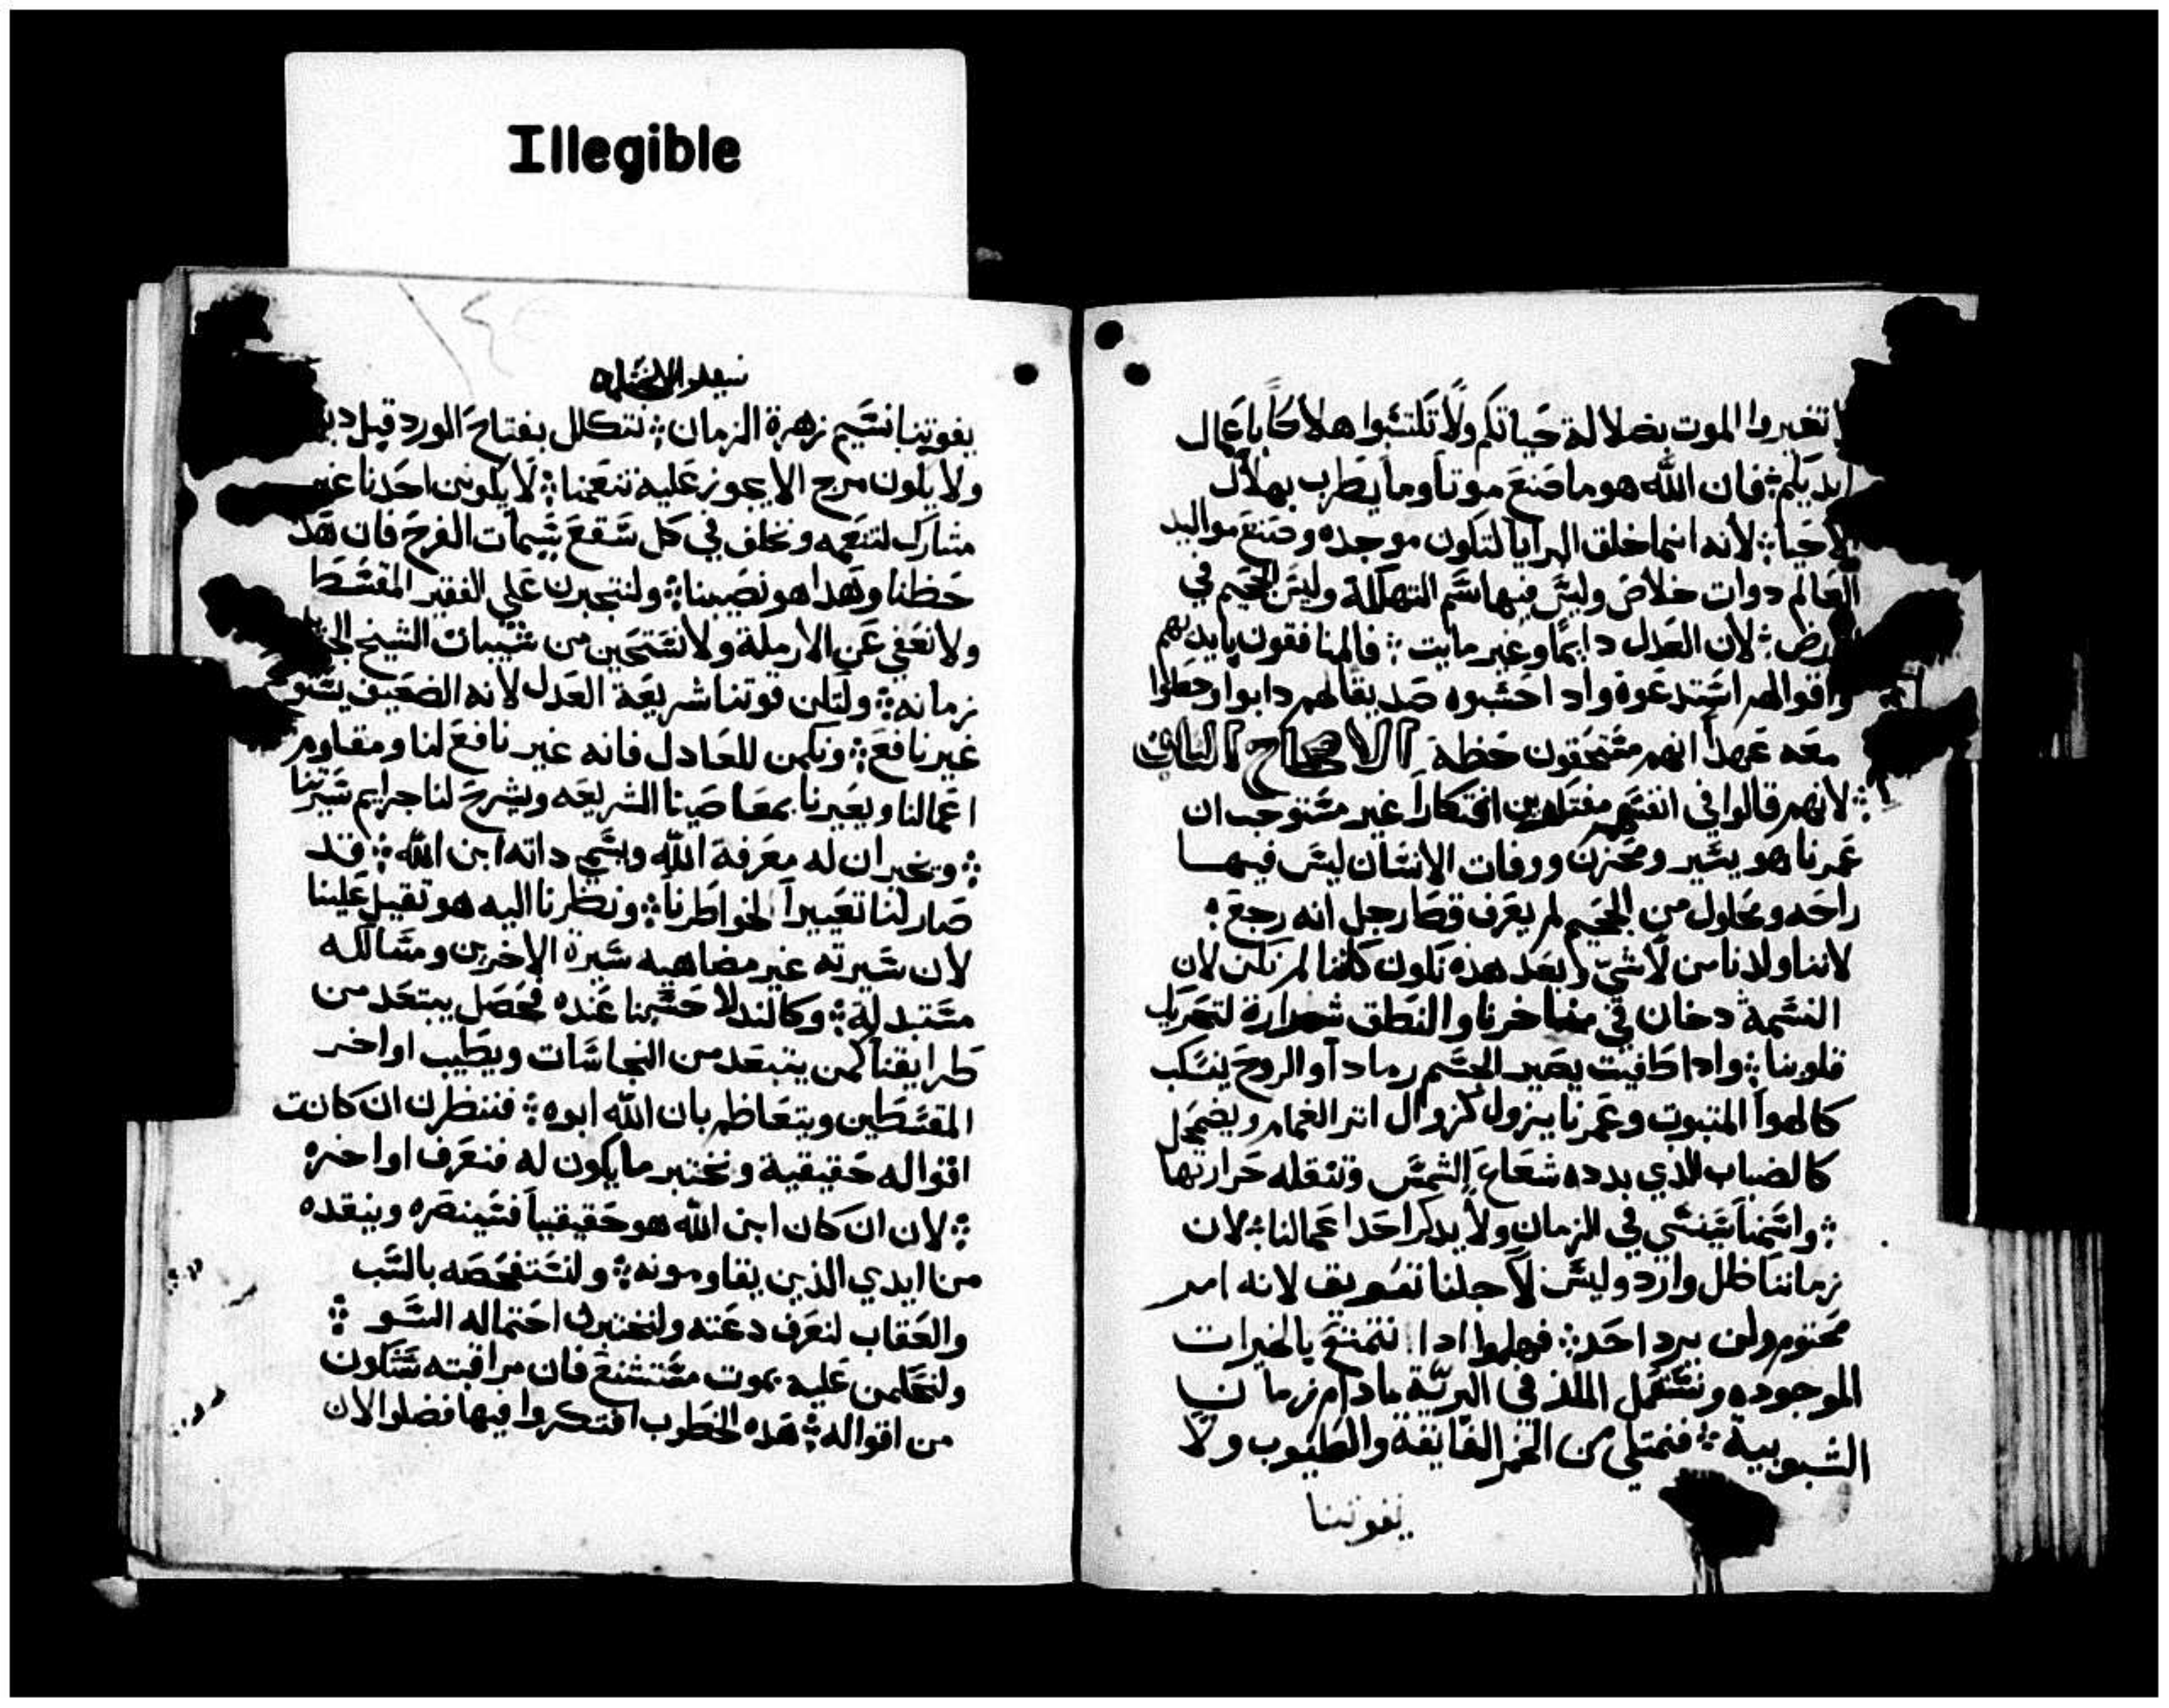 Illegible
تغيروا الموت بضلالة حياتكم ولا تكتسبوا هلاكاً باعمال
ايديكم فان الله هو ما صنع موتاً وما يطرب بهلاك
الاحيا لانه انما خلق البرايا لتكون موجده وصنع مواليد
العالم دوات خلاص وليس فيها سم التهلكة وليس الجحيم في
لان العدل دايماً وغير مايت فالمنافقون بايديهم
واقوالهم استدعوه واد احسبوه صديقا لهم دابوا وجعلوا
معه عهداً انهم مستحقون حظه الاصحاح الثاني
لانهم قالوا في انفسهم مفتكرين افتكاراً غير مستوجب ان
عمرنا هو يسير ومحزن ووفات الانسان ليس فيها
راحه ومحلول من الجحيم لم يعرف قط رجل انه رجع
لاننا ولدنا من لا شي وبعد هذه نكون كاننا لم نكن لان
النسمة دخان في مناخرنا والنطق شرارة لتحريك
قلوبنا وادا طفيت يصير الجسم رماداً والروح ينسكب
كالهوا المتبوت وعمرنا يزول كزوال اتر الغمام ويضمحل
كالضباب الذي بدده شعاع الشمس وتتقله حرارتها
واسمنا سينسي في الزمان ولا يدكر احد اعمالنا لان
زماننا ظل وارد وليس لاجلنا تعويق لانه امر
محتوم ولن يرد احد فهلموا ادا نتمتع بالخيرات
الموجوده ونستعمل الملذ في البرية مادام زمان
الشبوبية فنمتلي من الخمر الفايقة والطيوب ولا
يفوتننا
يفوتننا نسيم زهرة الزمان نتكلل بفتاح الورد قبل
ولا يكون مرج الا يجوز عليه تنعمنا لا يكونن احدنا غير
مشارك لتنعمه ونخلف في كل سقع سيمات الفرح فان هذ
حظنا وهدا هو نصيبنا ولنتجبرن علي الفقير المقسط
ولا نعفي عن الارملة ولا نستحين من شيبات الشيخ
زمانه ولتكن قوتنا شريعة العدل لانه الضعيف
غير نافع ونكمن للعادل فانه غير نافع لنا ومقاوم
اعمالنا ويعيرنا بمعاصينا الشريعه ويشرح لنا جرايم سيرتنا
ويخبر ان له معرفة الله ويسمي داته ابن الله قد
صار لنا تعييراً لخواطرنا ونظرنا اليه هو تقيل علينا
لان سيرته غير مضاهيه سيرة الاخرين ومسالكه
مستبدلة وكالندلا حسبنا عنده فحصل يبتعد من
طرايقنا كمن يتبعد من النجاسات ويطيب اواخر
المقسطين ويتعاظم بان الله ابوه فننظرن ان كانت
اقواله حقيقية ونختبر ما يكون له فنعرف اواخره
لان ان كان ابن الله هو حقيقياً فسينصره وينقده
من ايدي الذين يقاومونه ولنستفحصه بالسب
والعقاب لنعرف دعته ولنختبرن احتماله السو
ولنحكمن عليه بموت مستشنع فان مراقبته ستكون
من اقواله هذه الخطوب افتكروا فيها فضلوا لان